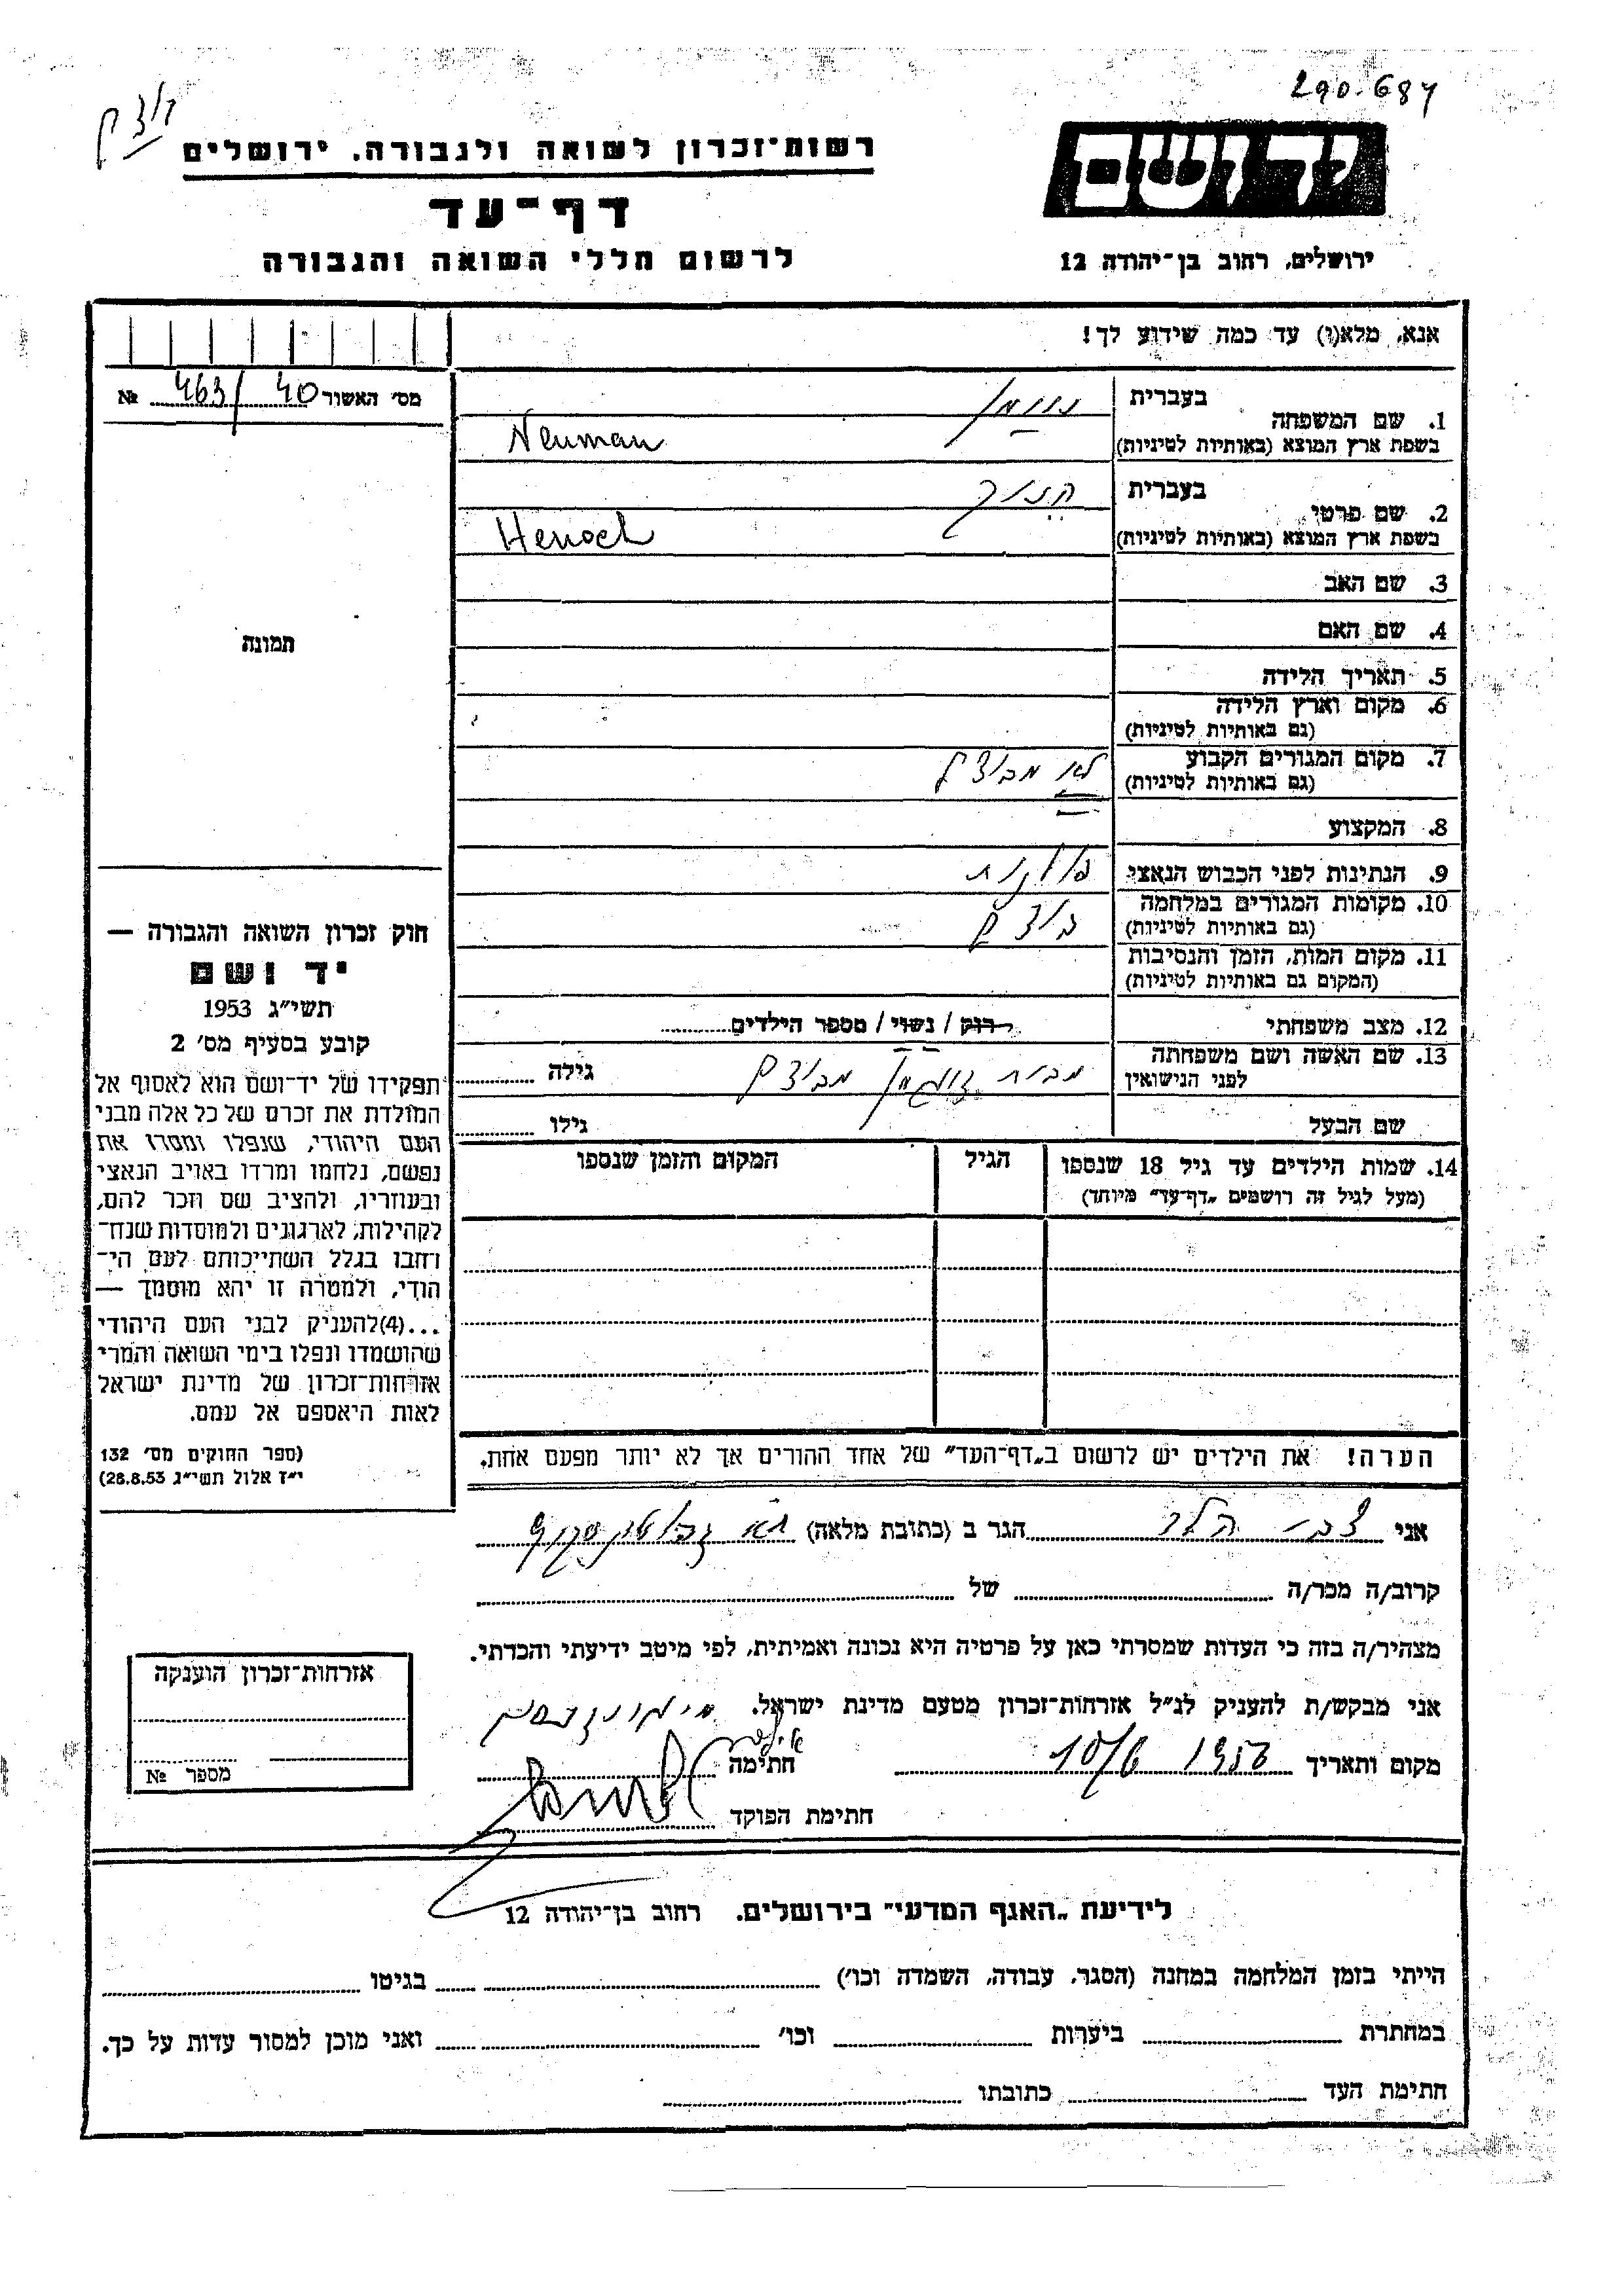 290.687
רשות־זכרון לשואה ולגבורה. ירושלים
דף־עד
לרשום חללי השואה והגבורה
יד ושם
ירושלים, רחוב בן־יהודה 12
אנא, מלא(י) עד כמה שידוע לך!
מס׳ האשור 463/40 №
בעברית נוימן
1. שם המשפחה
בשפת ארץ המוצא (באותיות לטיניות) Neuman
בעברית הנוך
2. שם פרטי
בשפת ארץ המוצא (באותיות לטיניות) Henoch
3. שם האב
4. שם האם
5. תאריך הלידה
6. מקום וארץ הלידה
(גם באותיות לטיניות)
7. מקום המגורים הקבוע לא
(גם באותיות לטיניות)
8. המקצוע
9. הנתינות לפני הכבוש הנאצי פולנית
10. מקומות המגורים במלחמה
(גם באותיות לטיניות)
11. מקום המות, הזמן והנסיבות
(המקום גם באותיות לטיניות)
12. מצב משפחתי רוק / נשוי / מספר הילדים
13. שם האשה ושם משפחתה מבית גילה
לפני הנישואין
שם הבעל גילו
14. שמות הילדים עד גיל 18 שנספו הגיל המקום והזמן שנספו
(מעל לגיל זה רושמים „דף־עד״ מיוחד)
הערה! את הילדים יש לרשום ב„דף־העד״ של אחד ההורים אך לא יותר מפעם אחת.
תמונה
חוק זכרון השואה והגבורה —
יד ושם
תשי״ג 1953
קובע בסעיף מס׳ 2
תפקידו של יד־ושם הוא לאסוף אל
המולדת את זכרם של כל אלה מבני
העם היהודי, שנפלו ומסרו את
נפשם, נלחמו ומרדו באויב הנאצי
ובעוזריו, ולהציב שם וזכר להם,
לקהילות, לארגונים ולמוסדות שנח־
רחבו בגלל השתייכותם לעם הי־
הודי, ולמטרה זו יהא מוסמך —
...(4)להעניק לבני העם היהודי
שהושמדו ונפלו בימי השואה והמרי
אזרחות־זכרון של מדינת ישראל
לאות היאספם אל עמם.
(ספר החוקים מס׳ 132
י״ז אלול תשי״ג 28.8.53)
אני צבי הלר הגר ב (כתובת מלאה)
קרוב/ה מכר/ה של
מצהיר/ה בזה כי העדות שמסרתי כאן על פרטיה היא נכונה ואמיתית, לפי מיטב ידיעתי והכרתי.
אני מבקש/ת להעניק לנ״ל אזרחות־זכרון מטעם מדינת ישראל.
מקום ותאריך 10/6 1956 חתימה
חתימת הפוקד
אזרחות־זכרון הוענקה
מספר №
לידיעת „האגף המדעי״ בירושלים. רחוב בן־יהודה 12
הייתי בזמן המלחמה במחנה (הסגר, עבודה, השמדה וכו׳) בגיטו
במחתרת ביערות וכו׳ ואני מוכן למסור עדות על כך.
חתימת העד כתובתו